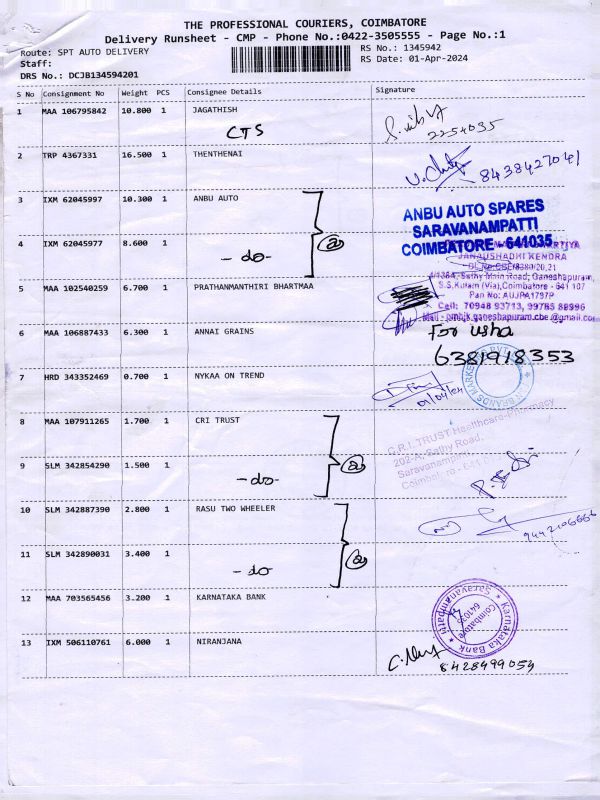 THE PROFESSIONAL COURIERS, COIMBATORE
Delivery Runsheet - CMP - Phone No.:0422-3505555 - Page No.:1
Route: SPT AUTO DELIVERY
RS No.: 1345942
Staff:
RS Date: 01-Apr-2024
DRS No.: DCJB134594201
S No Consignment No Weight PCS Consignee Details Signature
1 MAA 106795842 10.800 1 JAGATHISH
CTS
2254035
2 TRP 4367331 16.500 1 THENTHENAI
8438427041
3 IXM 62045997 10.300 1 ANBU AUTO
ANBU AUTO SPARES
SARAVANAMPATTI
COIMBATORE - 641035
4 IXM 62045977 8.600 1
- do -
JANAUSHADHI KENDRA
4/136A, Sathy Main Road, Ganeshapuram,
S.S.Kulam (Via),Coimbatore - 641 107
Pan No: AUJPA1797P
5 MAA 102540259 6.700 1 PRATHANMANTHIRI BHARTMAA
Cell: 70948 93713, 99765 88996
6 MAA 106887433 6.300 1 ANNAI GRAINS
For usha
6381918353
7 HRD 343352469 0.700 1 NYKAA ON TREND
01/04/24
8 MAA 107911265 1.700 1 CRI TRUST
C.R.I. TRUST Healthcare-Pharmacy
202-A, Sathy Road,
Saravanampatti
9 SLM 342854290 1.500 1
- do -
10 SLM 342887390 2.800 1 RASU TWO WHEELER
9442106666
11 SLM 342890031 3.400 1
- do
12 MAA 703565456 3.200 1 KARNATAKA BANK
Karnataka Bank
Saravanampatti
Coimbatore
641035
13 IXM 506110761 6.000 1 NIRANJANA
8428499054